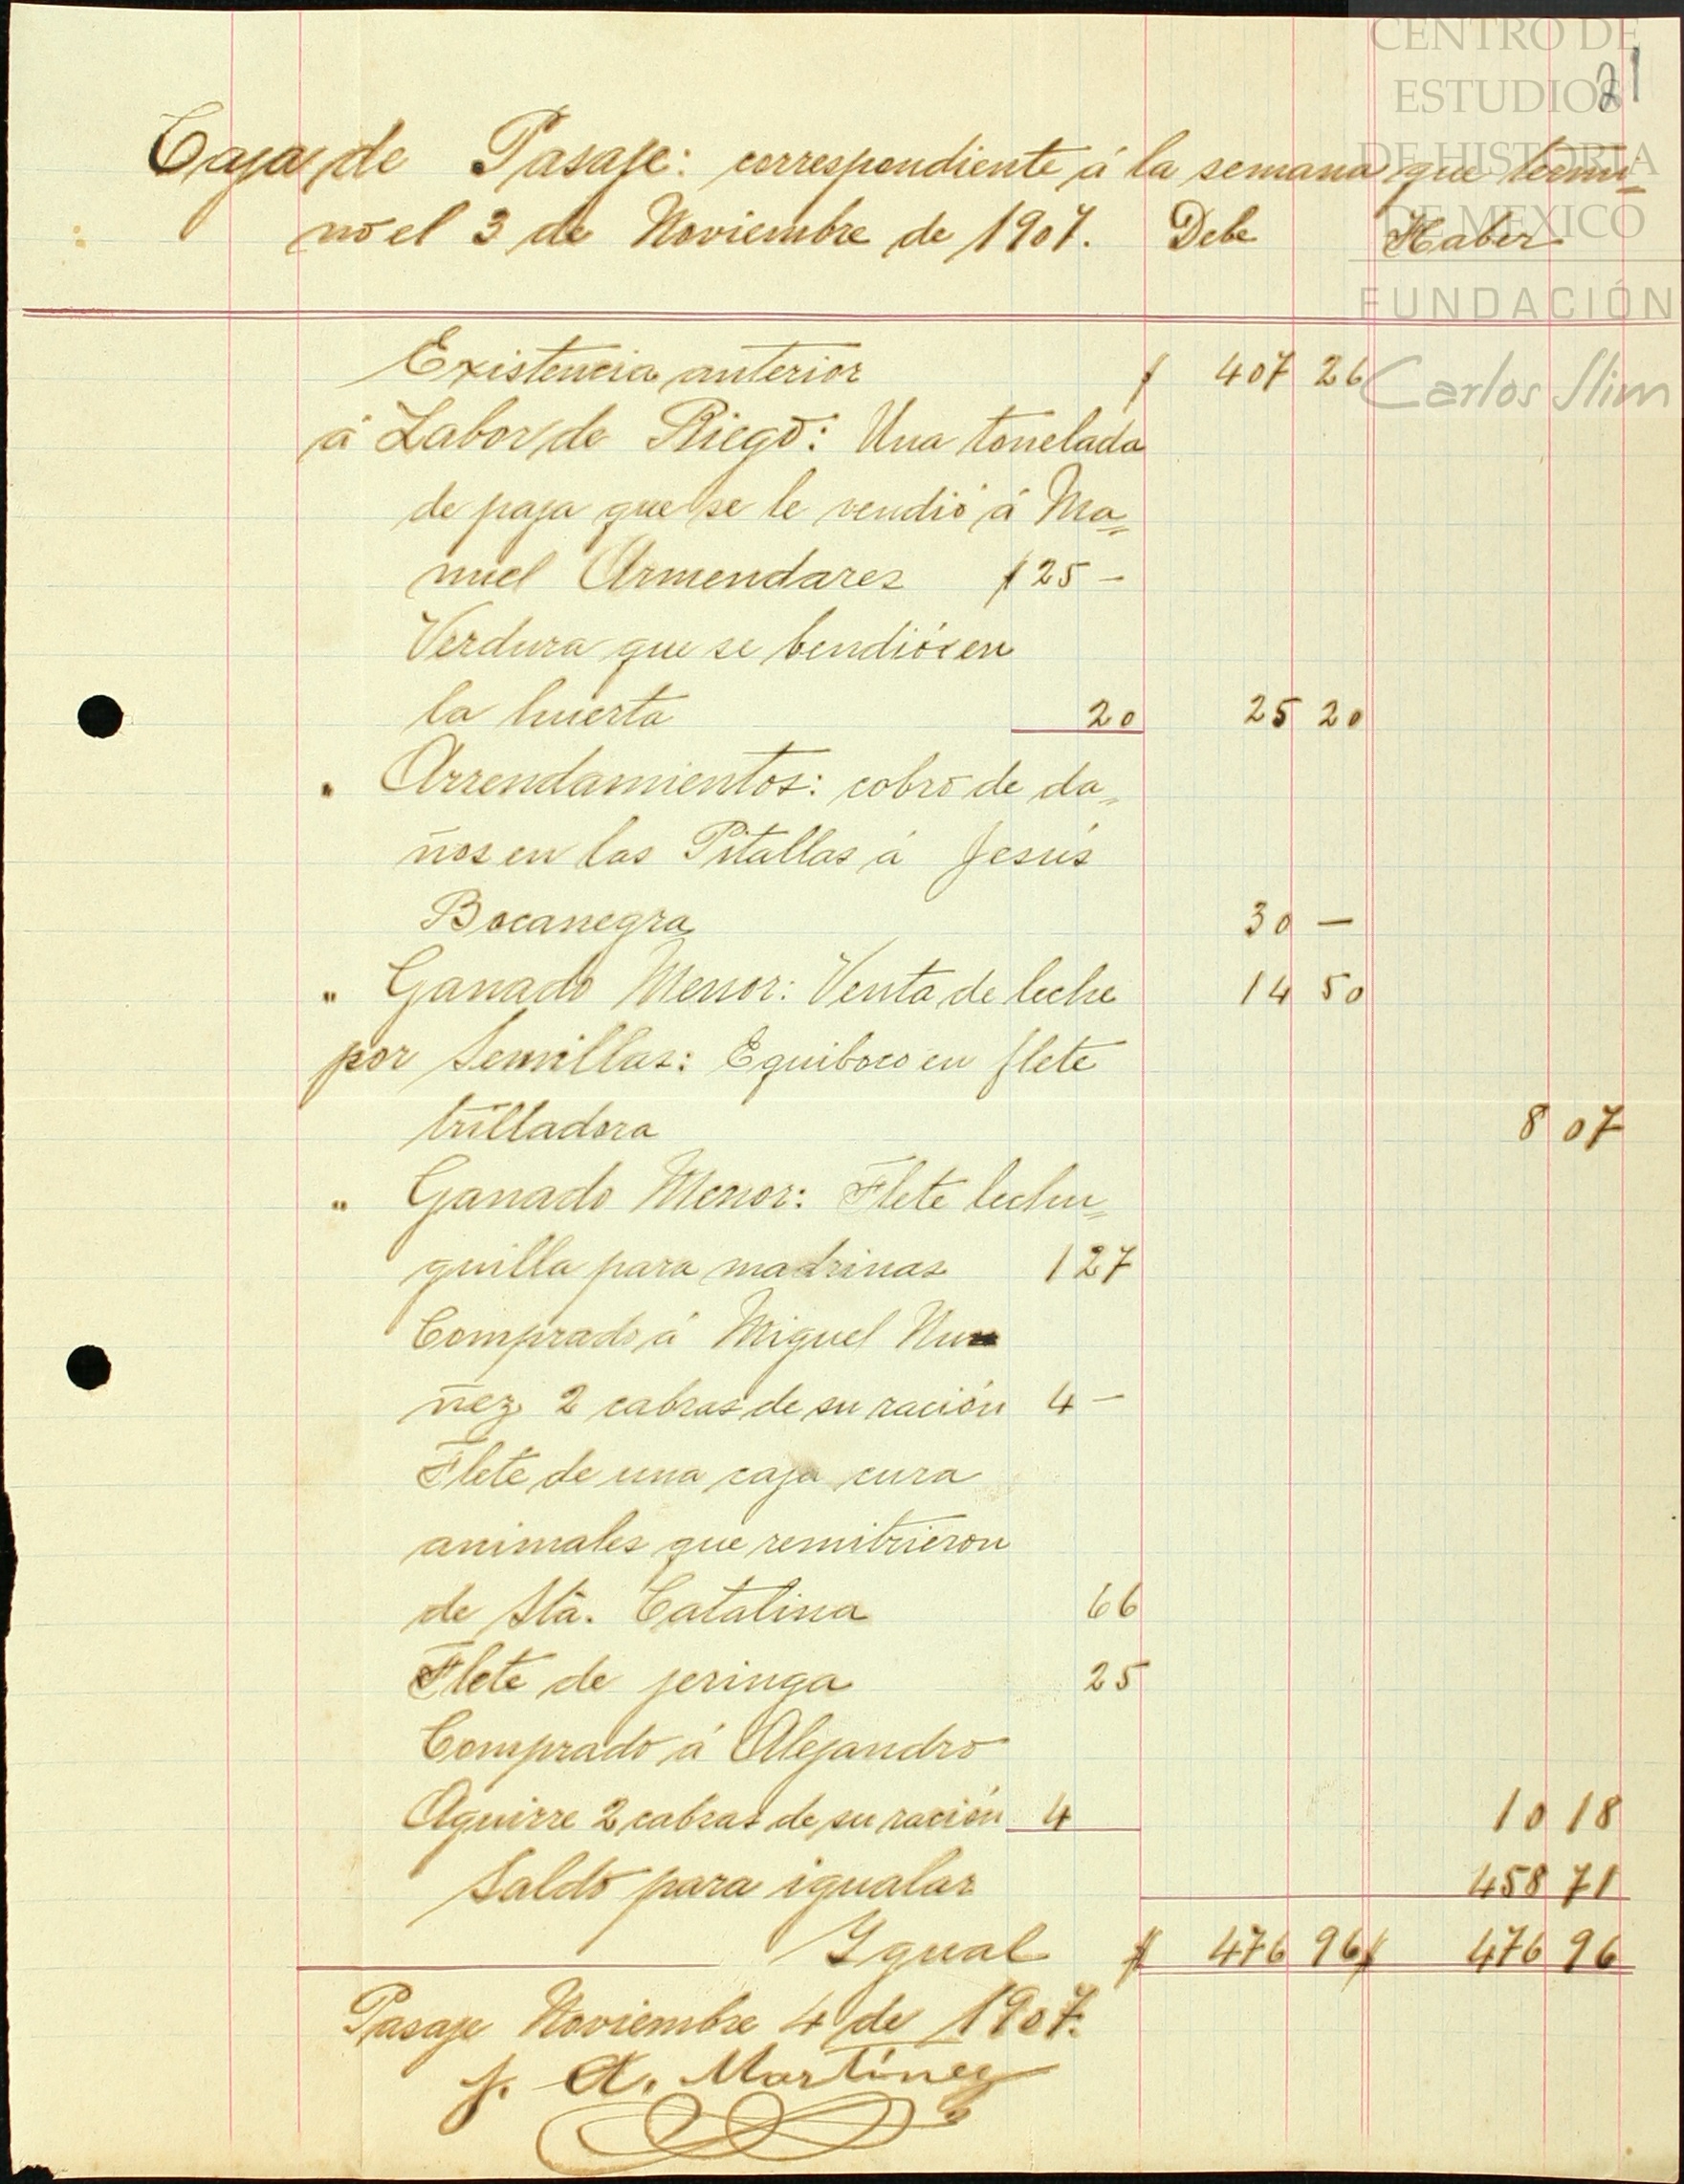 CENTRO DE
ESTUDIOS
DE HISTORIA
DE MEXICO
FUNDACIÓN
Carlos Slim
21
Caja de Pasaje: correspondiente á la semana que termi=
nó el 3 de Noviembre de 1907. Debe Haber
Existencia anterior $ 407 26
á Labor de Riego: Una tonelada
de paja que se le vendió á Ma=
nuel Armendares $25 —
Verdura que se bendió en
la huerta 20 25 20
" Arrendamientos: cobro de da=
ños en las Pitallas á Jesús
Bocanegra 30 —
" Ganado Menor: Venta de leche 14 50
por Semillas: Equiboco en flete
trilladora 8 07
" Ganado Menor: Flete lechu=
guilla para madrinas 1 27
Comprado á Miguel Nu
ñez 2 cabras de su ración 4 —
Flete de una caja cura
animales que remitieron
de Sta. Catalina 66
Flete de jeringa 25
Comprado á Alejandro
Aguirre 2 cabras de su ración 4 10 18
Saldo para igualar 458 71
Ygual $ 476 96 $ 476 96
Pasaje Noviembre 4 de 1907.
J. A. Martínez